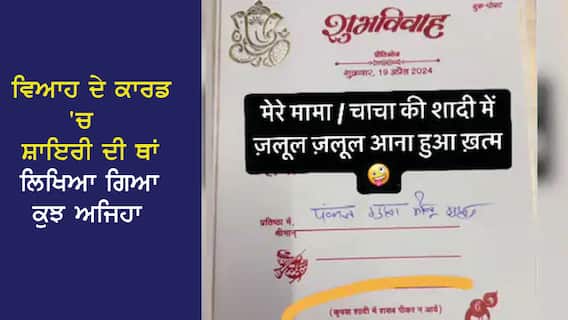 ਵਿਆਹ ਦੇ ਕਾਰਡ
'ਚ
ਸ਼ਾਇਰੀ ਦੀ ਥਾਂ
ਲਿਖਿਆ ਗਿਆ
ਕੁਝ ਅਜਿਹਾ
बुक-पोस्ट
शुभविवाह
प्रीतिभोज
शुक्रवार, 19 अप्रैल 2024
मेरे मामा / चाचा की शादी में
ज़लूल ज़लूल आना हुआ ख़त्म
प्रतिष्ठा में,
श्रीमान्
(कृपया शादी में शराब पीकर न आवें)